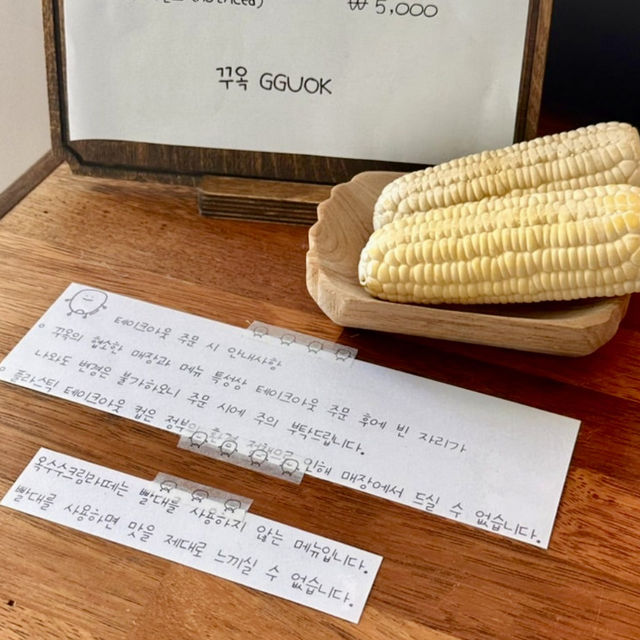 ₩ 5,000
꾸옥 GGUOK
테이크아웃 주문 시 안내사항
• 꾸옥의 협소한 매장과 메뉴 특성상 테이크아웃 주문 후에 빈 자리가
나와도 변경은 불가하오니 주문 시에 주의 부탁드립니다.
• 플라스틱 테이크아웃 컵은 인해 매장에서 드실 수 없습니다.
옥수수크림라떼는 빨대를 사용하지 않는 메뉴입니다.
빨대를 사용하면 맛을 제대로 느끼실 수 없습니다.